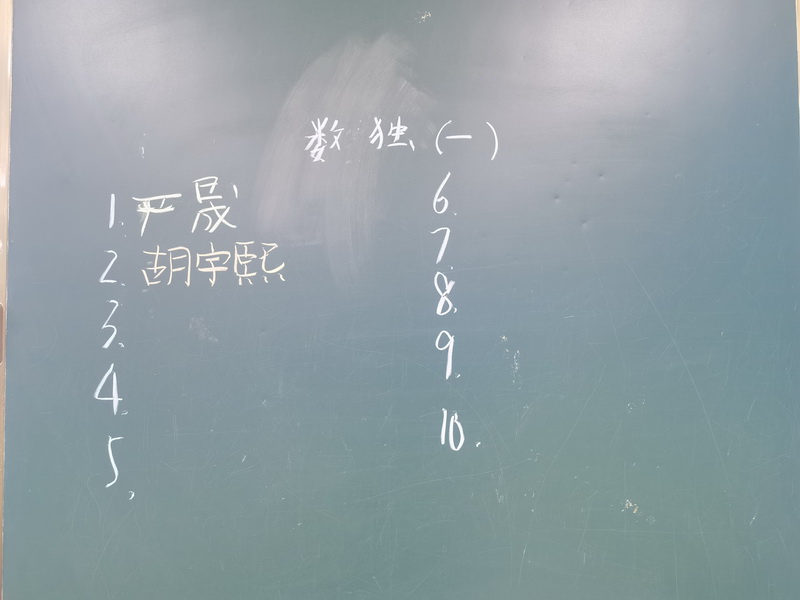 数独(一)
1. 严晟
2. 胡宇熙
3.
4.
5.
6.
7.
8.
9.
10.